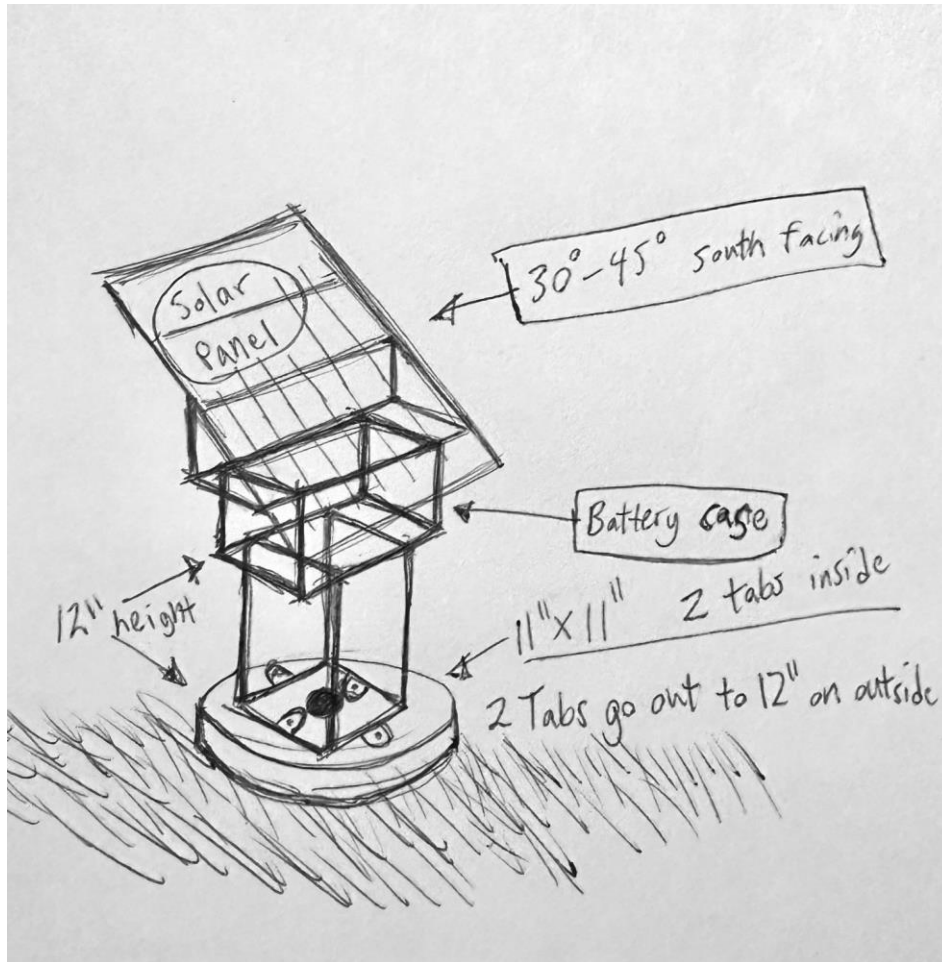 Solar
Panel
30°-45° south facing
Battery case
12" height
11"X11" 2 tabs inside
2 Tabs go out to 12" on outside